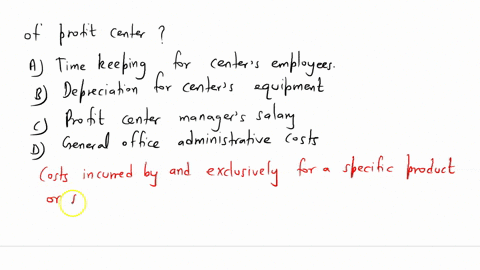 of profit center ?
A) Time keeping for center's employees.
B) Depreciation for center's equipment
C) Profit center manager's salary
D) General office administrative costs
Costs incurred by and exclusively for a specific product
or s